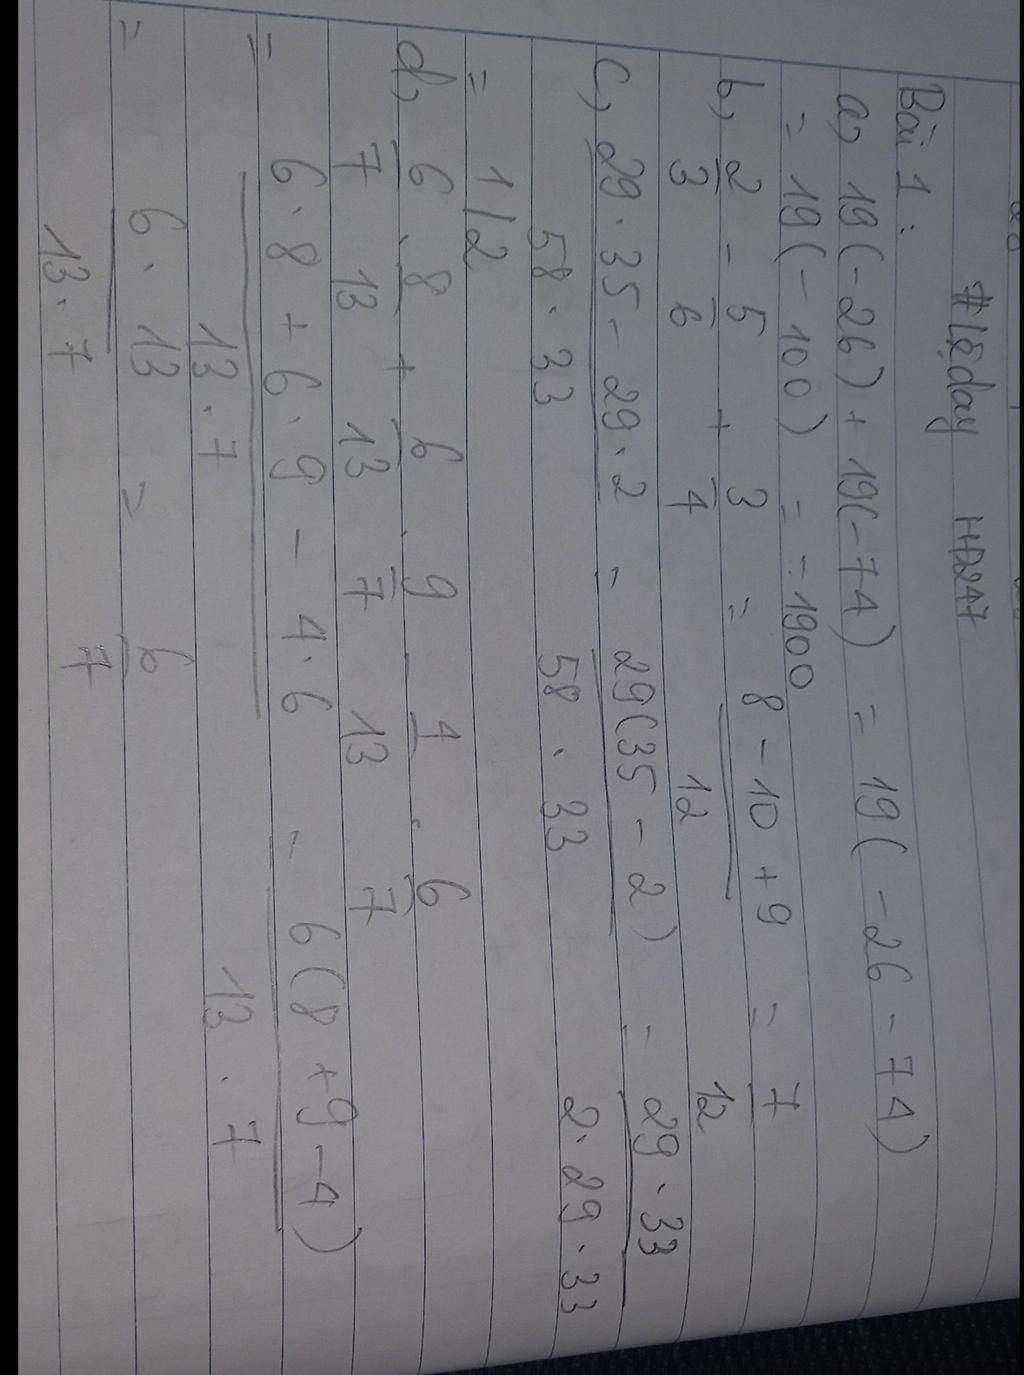 #lêday HĐ247
Bài 1:
a, 19(-26) + 19(-74) = 19(-26 - 74)
= 19(-100) = -1900
b, 2/3 - 5/6 + 3/4 = (8 - 10 + 9)/12 = 7/12
c, (29.35 - 29.2)/(58.33) = (29(35 - 2))/(58.33) = (29.33)/(2.29.33)
= 1/2
d, 6/7 . 8/13 + 6/13 . 9/7 4/13 . 6/7
= (6.8 + 6.9 - 4.6)/(13.7) = (6(8 + 9 - 4))/(13.7)
= (6.13)/(13.7) = 6/7